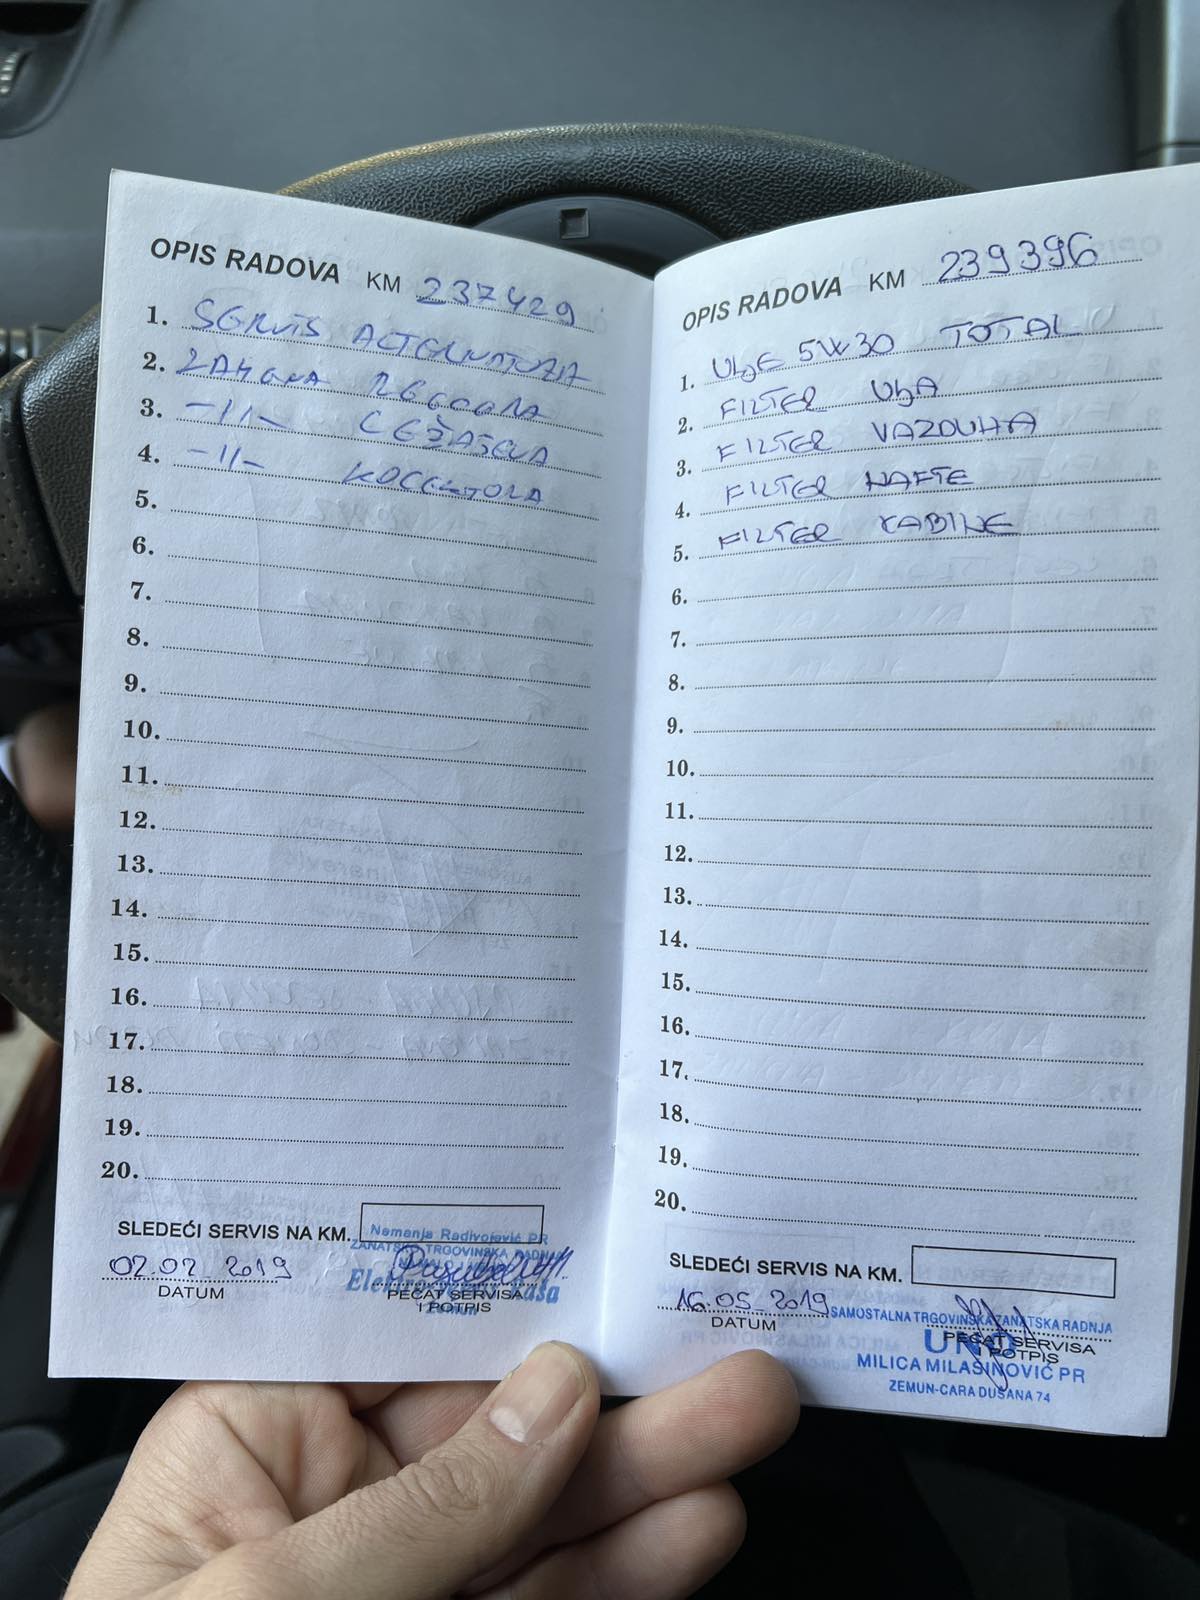 OPIS RADOVA KM 237429
1. SERVIS ALTERNATORA
2. ZAMENA REGLERA
3. -11- LEŽAJEVA
4. -11- KOLEKTORA
5.
6.
7.
8.
9.
10.
11.
12.
13.
14.
15.
16.
17.
18.
19.
20.
SLEDEĆI SERVIS NA KM.
Nemanja Radivojević PR
ZANATSKO TRGOVINSKA RADNJA
02.02_2019
DATUM
PEČAT SERVISA
I POTPIS
Zemun
OPIS RADOVA KM 239396
1. UljE 5W30 TOTAL
2. FILTER UljA
3. FILTER VAZDUHA
4. FILTER NAFTE
5. FILTER KABINE
6.
7.
8.
9.
10.
11.
12.
13.
14.
15.
16.
17.
18.
19.
20.
SLEDEĆI SERVIS NA KM.
16.05_2019
DATUM
SAMOSTALNA TRGOVINSKA ZANATSKA RADNJA
UNO
PEČAT SERVISA
I POTPIS
MILICA MILAŠINOVIĆ PR
ZEMUN-CARA DUŠANA 74